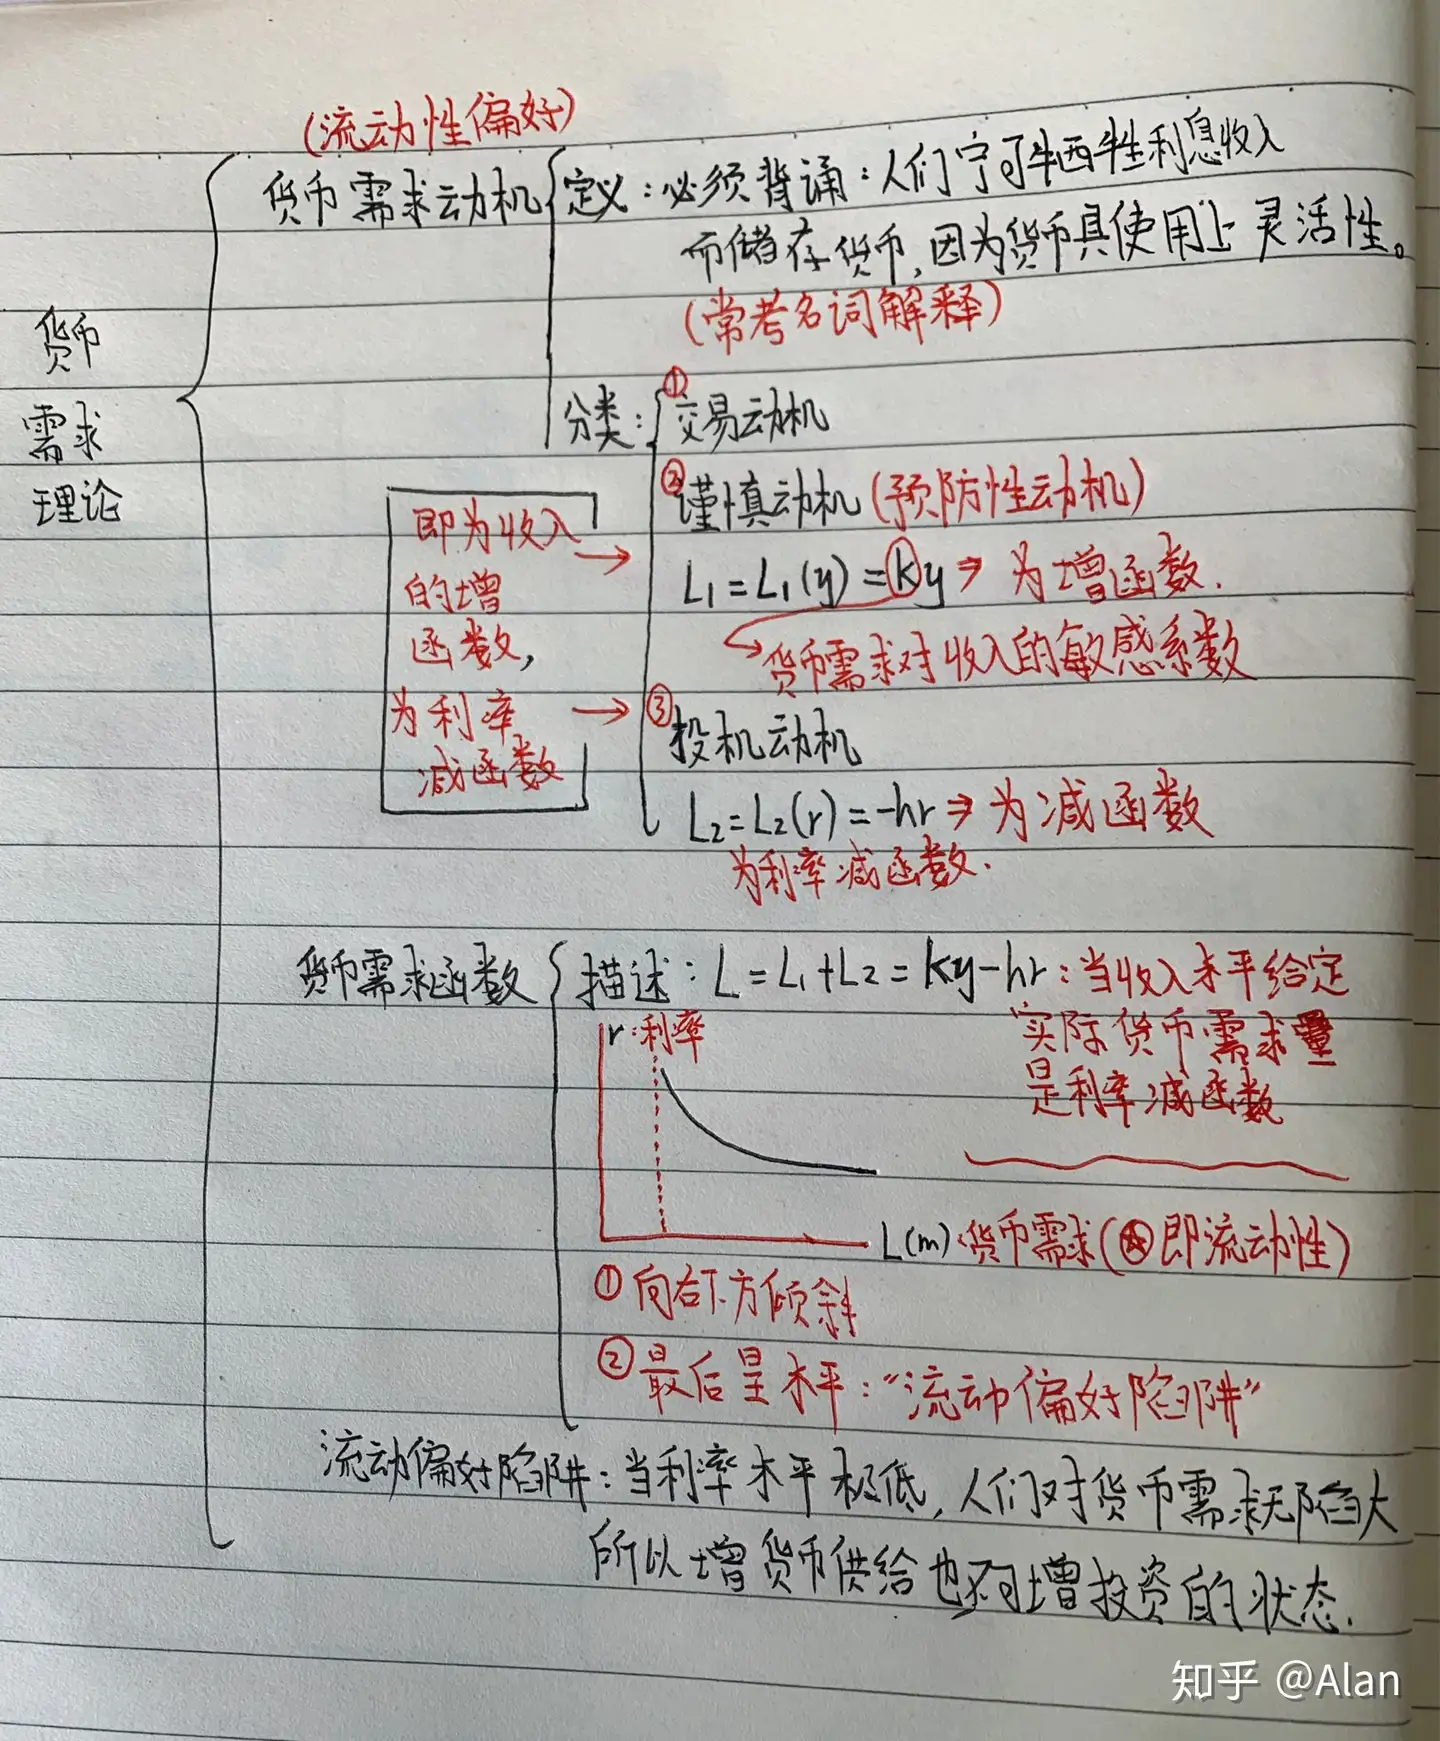 (流动性偏好)
货币需求动机
定义：必须背诵：人们宁可牺牲利息收入
而储存货币,因为货币具使用上灵活性。
(常考名词解释)
货币
需求
理论
分类：
①交易动机
②谨慎动机(预防性动机)
L₁=L₁(y)=ky⇒为增函数.
货币需求对收入的敏感系数
即为收入
的增
函数,
为利率
减函数
③投机动机
L₂=L₂(r)=-hr⇒为减函数
为利率减函数.
货币需求函数
描述：L=L₁+L₂=ky-hr：当收入水平给定
实际货币需求量
是利率减函数
r：利率
L(m)·货币需求(即流动性)
①向右下方倾斜
②最后呈水平：“流动偏好陷阱”
流动偏好陷阱：当利率水平极低,人们对货币需求无限大
所以增货币供给也不可增投资的状态.
知乎 @Alan